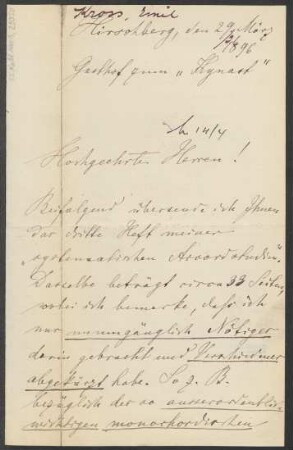 Kross, Emil
Hirschberg, den 29. März
1896
Gasthof zum „Kynast“
b 14/4
Hochgeehrte Herren!
Beifolgend übersende ich Ihnen
das dritte Heft meiner
„systematischen Accordstudien“.
Dasselbe beträgt circa 33 Seiten,
wobei ich bemerke, daß ich
nur unumgänglich Nötiges
darin gebracht und Verschiedenes
abgekürzt habe. So z. B.
bezüglich der so ausserordentlich
wichtigen monochordischen